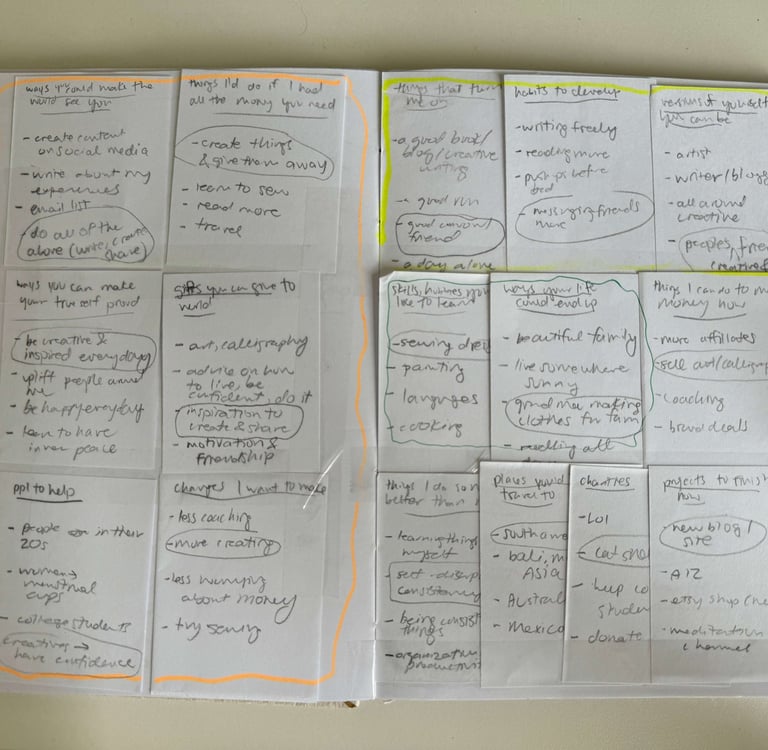 ways you could make the
world see you
- create content
on social media
- write about my
experiences
- email list
- do all of the
above (write, create,
share)
things I'd do if I had
all the money you need
- create things
& give them away
- learn to sew
- read more
- travel
ways you can make
your true self proud
- be creative &
inspired everyday
- uplift people around
me
- be happy everyday
- learn to have
inner peace
gifts you can give to
world
- art, calligraphy
- advice on how
to live, be
confident, do it
- inspiration to
create & share
- motivation &
friendship
ppl to help
- people in their
20s
- women →
menstrual
cups
- college students
creatives →
have confidence
changes I want to make
- less coaching
- more creating
- less worrying
about money
- try sewing
things that turn
me on
- a good book/
blog/creative
writing
- a good run
- good convo w/
friend
- a day alone
habits to develop
- writing freely
- reading more
- pushups before
bed
- messaging friends
more
versions of yourself
you can be
- artist
- writer/blogg
- all around
creative
- peoples, frien
creative
skills, hobbies you
like to learn
- sewing
- painting
- languages
- cooking
ways your life
could end up
- beautiful family
- live somewhere
sunny
- grandma making
clothes for fam
- all
things I can do to m
money now
- more affiliates
- sell art/calligrap
- coaching
- brand deals
things I do
better than
- learning things
myself
- self-discip
consistency
- being consist
things
- organization
productivi
places you'd
travel to
- south am
- bali,
ASIA
- Austral
- Mexico
charities
- LOL
- cat she
- help co
studen
- donate
projects to finish
now
- new blog/
site
- A2Z
- etsy shop
- meditation
channel